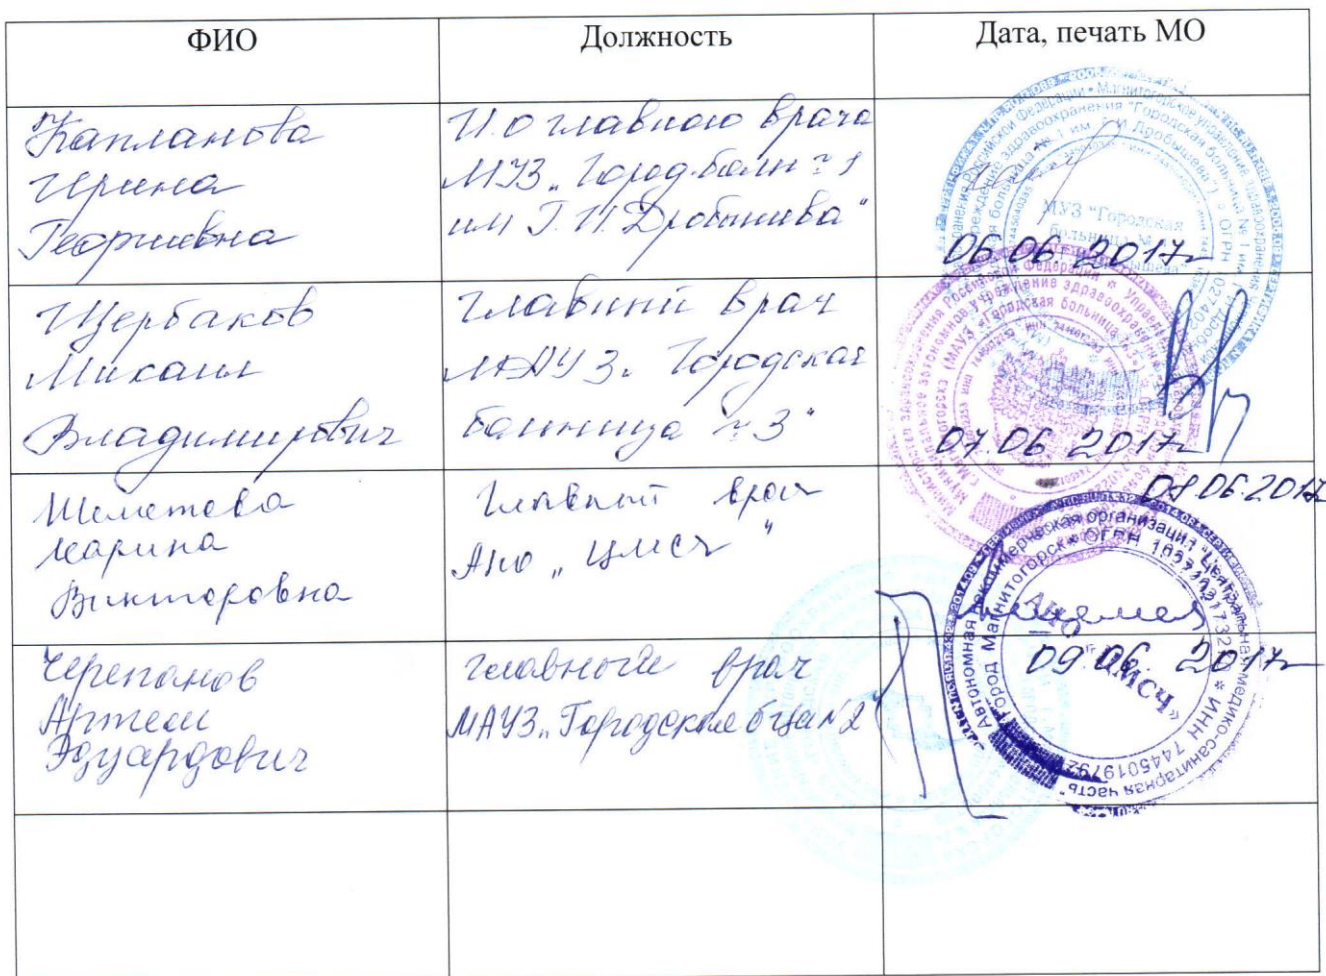 ФИО
Должность
Дата, печать МО
Капланова
Ирина
Георгиевна
И.О главного врача
МУЗ „Город. больн № 1
им Г. И. Дробышева“
МУЗ "Городская
больница №
06.06 2017г
Щербаков
Михаил
Владимирович
главный врач
МАУЗ „Городская
больница № 3“
07.06 2017г
Шеметова
Марина
Викторовна
Главный врач
АНО „ЦМСЧ“
08.06.2017
Автономная некоммерческая организация "Центральная медико-санитарная часть"
Город Магнитогорск
ИНН 7445019792
АНО "ЦМСЧ"
Черепанов
Артем
Эдуардович
главный врач
МАУЗ „Городская б-ца №2“
09.06. 2017г